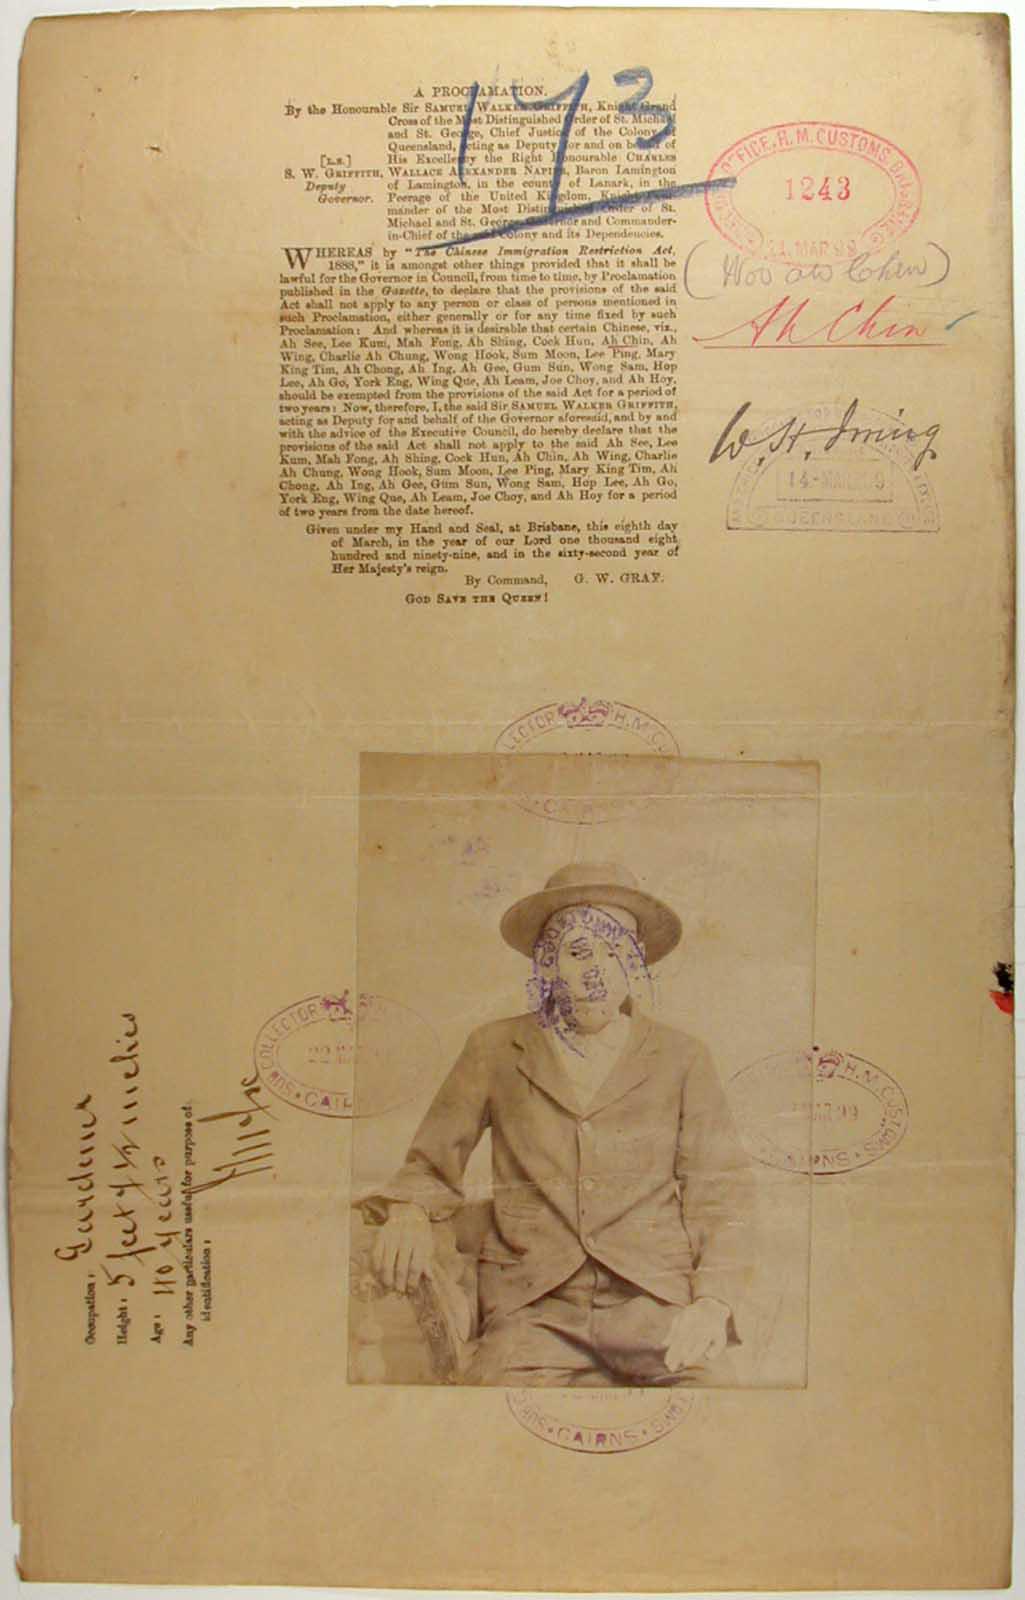 173
A PROCLAMATION.
By the Honourable Sir SAMUEL WALKER GRIFFITH, Knight Grand
Cross of the Most Distinguished Order of St. Michael
and St. George, Chief Justice of the Colony of
Queensland, acting as Deputy for and on behalf of
[L.S.] His Excellency the Right Honourable CHARLES
S. W. GRIFFITH, WALLACE ALEXANDER NAPIER, Baron Lamington
Deputy of Lamington, in the county of Lanark, in the
Governor. Peerage of the United Kingdom, Knight Com-
mander of the Most Distinguished Order of St.
Michael and St. George, Governor and Commander-
in-Chief of the said Colony and its Dependencies.
WHEREAS by "The Chinese Immigration Restriction Act,
1888," it is amongst other things provided that it shall be
lawful for the Governor in Council, from time to time, by Proclamation
published in the Gazette, to declare that the provisions of the said
Act shall not apply to any person or class of persons mentioned in
such Proclamation, either generally or for any time fixed by such
Proclamation: And whereas it is desirable that certain Chinese, viz.,
Ah See, Lee Kum, Mah Fong, Ah Shing, Cock Hun, Ah Chin, Ah
Wing, Charlie Ah Chung, Wong Hook, Sum Moon, Lee Ping, Mary
King Tim, Ah Chong, Ah Ing, Ah Gee, Gum Sun, Wong Sam, Hop
Lee, Ah Go, York Eng, Wing Que, Ah Leam, Joe Choy, and Ah Hoy,
should be exempted from the provisions of the said Act for a period of
two years: Now, therefore, I, the said Sir SAMUEL WALKER GRIFFITH,
acting as Deputy for and behalf of the Governor aforesaid, and by and
with the advice of the Executive Council, do hereby declare that the
provisions of the said Act shall not apply to the said Ah See, Lee
Kum, Mah Fong, Ah Shing, Cock Hun, Ah Chin, Ah Wing, Charlie
Ah Chung, Wong Hook, Sum Moon, Lee Ping, Mary King Tim, Ah
Chong, Ah Ing, Ah Gee, Gum Sun, Wong Sam, Hop Lee, Ah Go,
York Eng, Wing Que, Ah Leam, Joe Choy, and Ah Hoy for a period
of two years from the date hereof.
Given under my Hand and Seal, at Brisbane, this eighth day
of March, in the year of our Lord one thousand eight
hundred and ninety-nine, and in the sixty-second year of
Her Majesty's reign.
By Command, G. W. GRAY.
GOD SAVE THE QUEEN!
OFFICE, H.M. CUSTOMS, BRISBANE
1243
MAR 99
Ah Chin
W. H. Irving
14-MAR
QUEENSLAND
COLLECTOR H.M. CU
CAIRNS
SUB COLLECTOR
CAIR
H.M. CUSTOMS
99
CAIRNS
CAIRNS
Occupation: Gardener
Height: 5 feet
Age: 40 Years
Any other particulars useful for purpose of
identification: